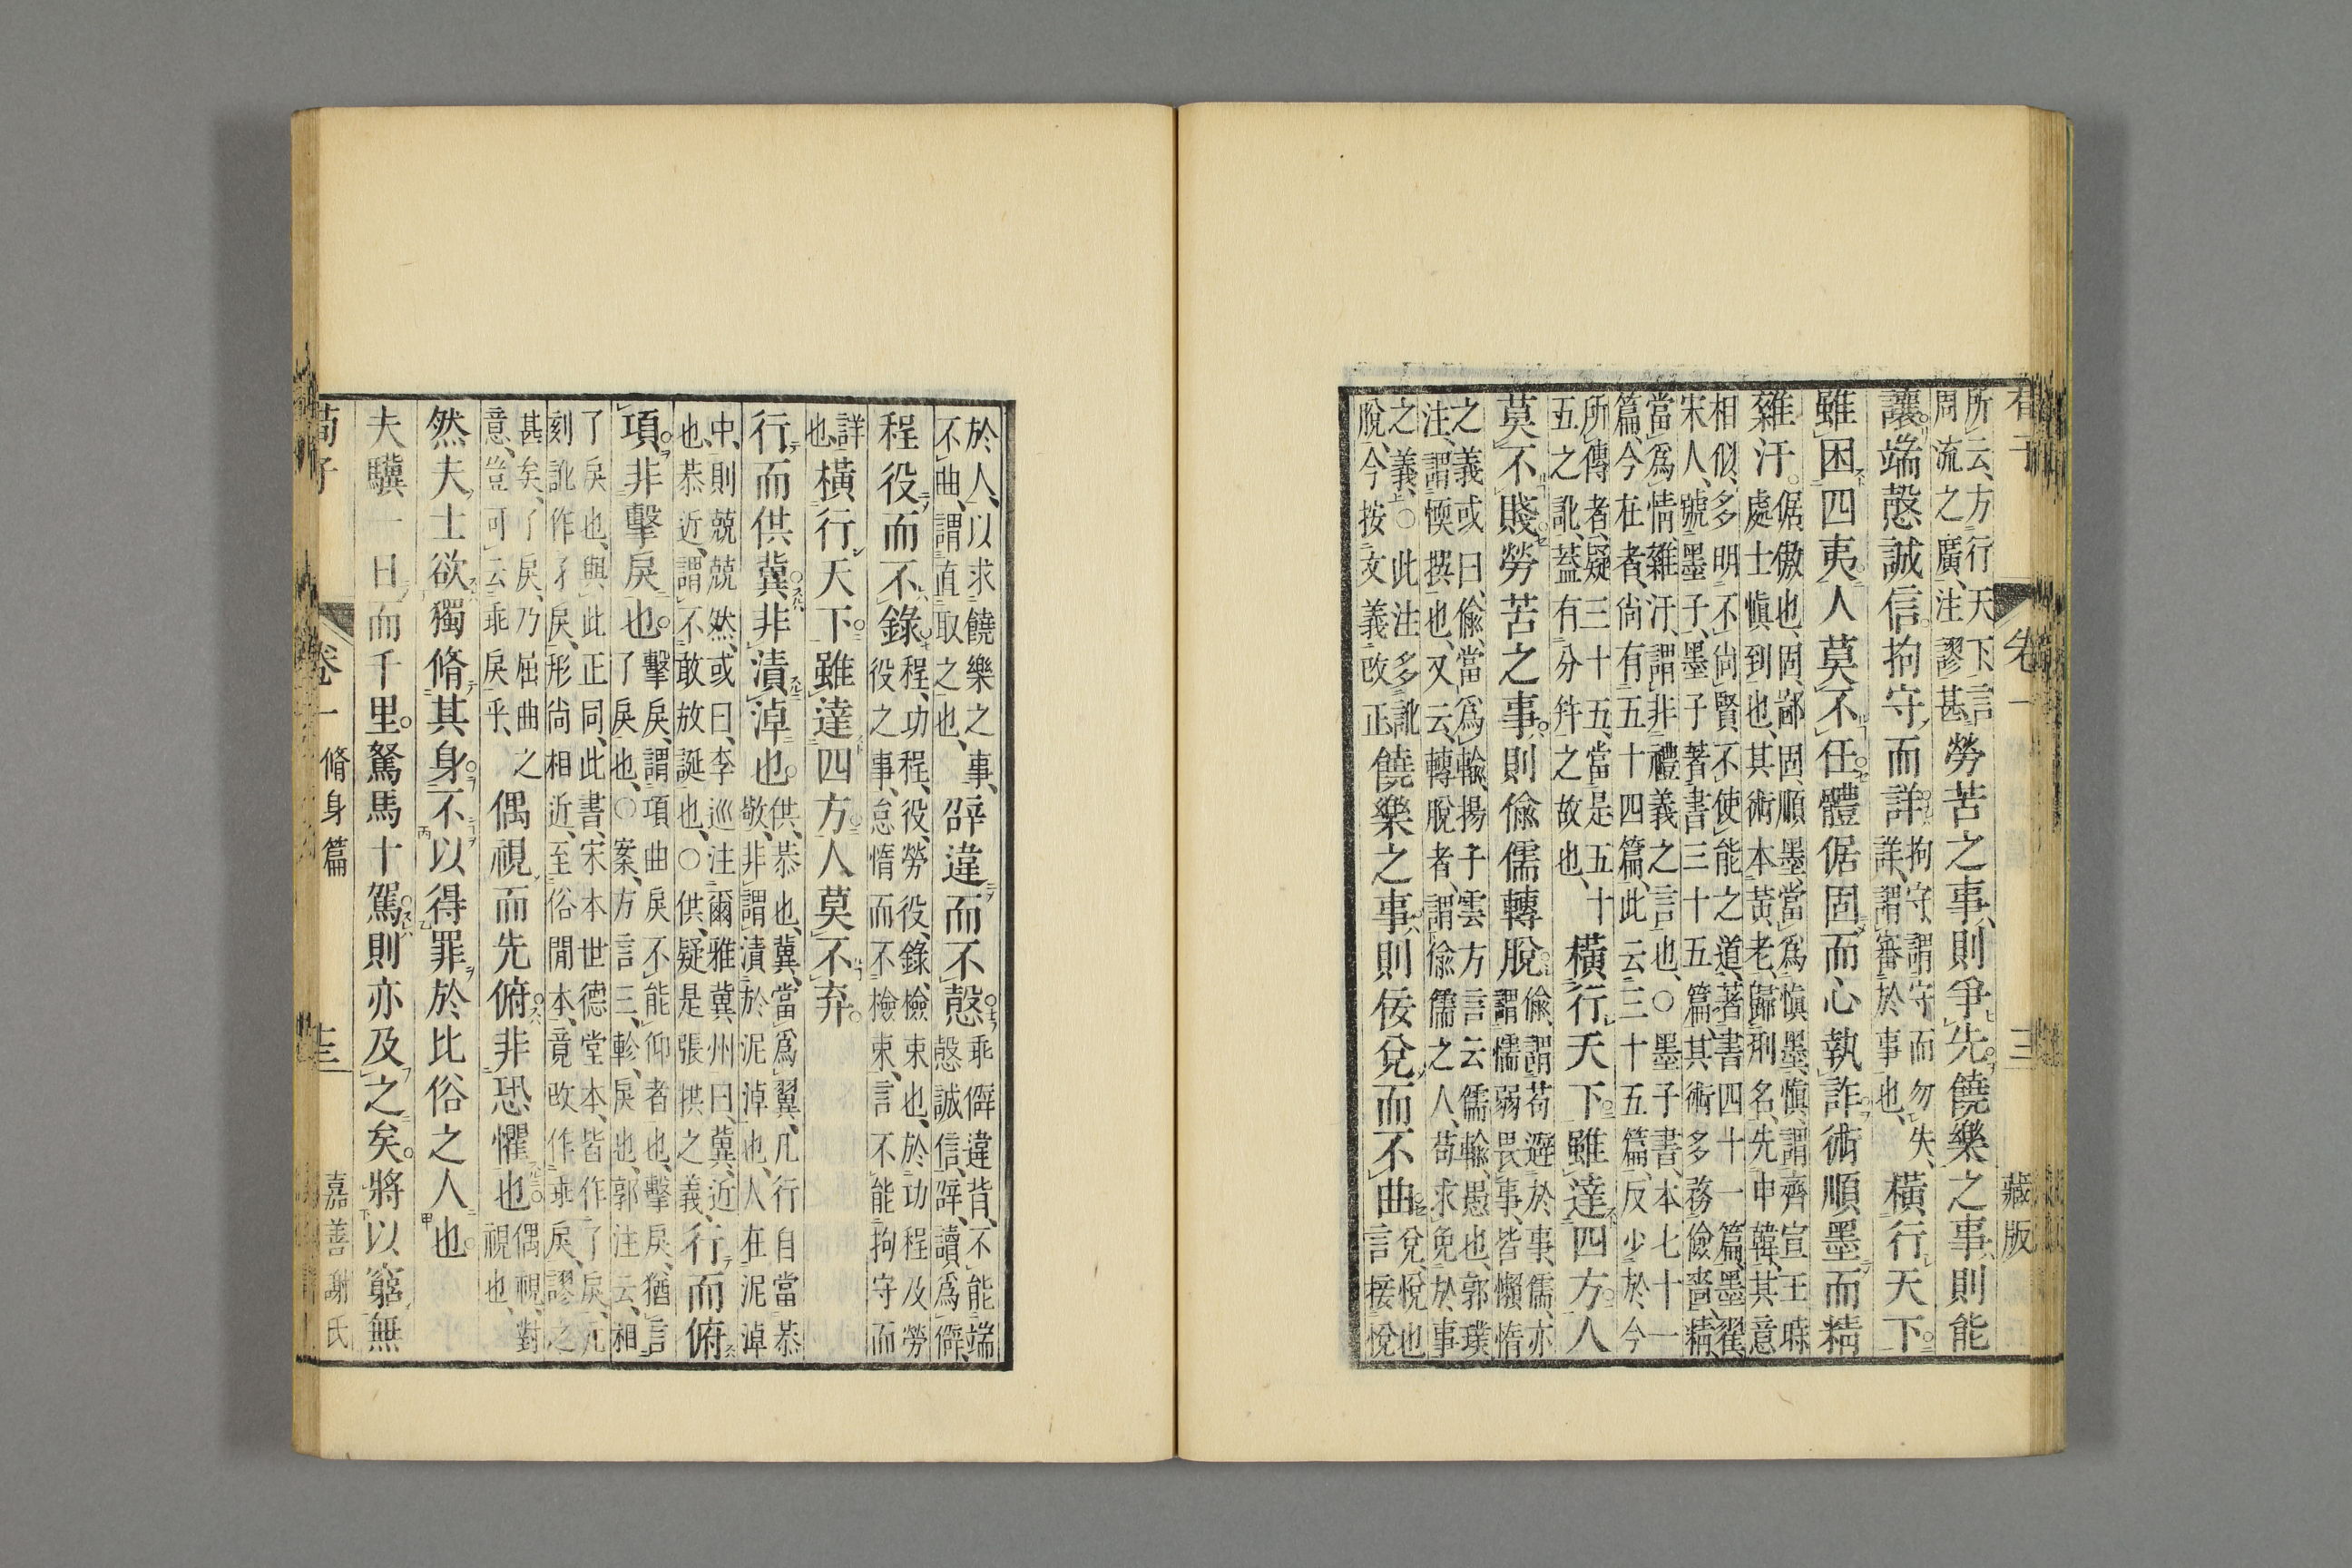 卷一 藏版
所云、方行天下、言周流之廣、注謬甚、勞苦之事、則爭先。饒樂之事、則能
讓。端愨誠信。拘守而詳。拘守、謂守而勿失、詳、謂審於事也、橫行天下。
雖困四夷。人莫不任。體倨固而心執詐。術順墨而精
雜汙。倨傲也、固、鄙固、順墨、當爲愼墨、愼、謂齊宣王時處士愼到也、其術本黃老、歸刑名、先申韓、其意
相似、多明不尚賢、不使能之道、著書四十一篇、墨翟、宋人、號墨子、墨子著書三十五篇、其術多務儉嗇、精、
當爲情、雜汙、謂非禮義之言也、○墨子書、本七十一篇、今在者、尚有五十四篇、此云三十五篇、反少於今
所傳者、疑三十五、當是五十五之訛、蓋有分幷之故也、橫行天下。雖達四方。人
莫不賤。勞苦之事。則偷儒轉脫。偷、謂苟避於事、儒、亦謂懦弱畏事、皆懶惰
之義、或曰、偷、當爲輸、揚子雲方言云、儒輸、愚也、郭璞注、謂愞撰也、又云、轉脫者、謂偷儒之人、苟求免於事
之義、○此注多訛脫、今按文義改正饒樂之事、則佞兌而不曲兌、悅也言接悅
於人、以求饒樂之事、不曲、謂直取之也、辟違而不愨。乖僻違背、不能端愨誠信、辟、讀爲僻、
程役而不錄。程、功程、役、勞役、錄、檢束也、於功程及勞役之事、怠惰而不檢束、言不能拘守而
詳也、橫行天下。雖達四方。人莫不弃。
行而供冀。非漬淖也。供、恭也、冀、當爲翼、凡行自當恭敬、非謂漬於泥淖也、人在泥淖
中、則兢兢然、或曰、李巡注爾雅冀州曰、冀、近也、恭近、謂不敢放誕也、○供、疑是張拱之義、行而俯
項。非擊戾也。擊戾、謂項曲戾不能仰者也、擊戾、猶言了戾也、○案、方言三、軫、戾也、郭注云、相
了戾也、與此正同、此書、宋本世德堂本、皆作了戾、元刻訛作孑戾、形尚相近、至俗閒本、竟改作乖戾、謬之
甚矣、了戾、乃屈曲之意、豈可云乖戾乎、偶視而先俯。非恐懼也。偶視、對視也、
然夫士欲獨脩其身。不以得罪於比俗之人也。
夫驥一日而千里。駑馬十駕。則亦及之矣。將以窮無
荀子 卷一 脩身篇 十三 嘉善謝氏